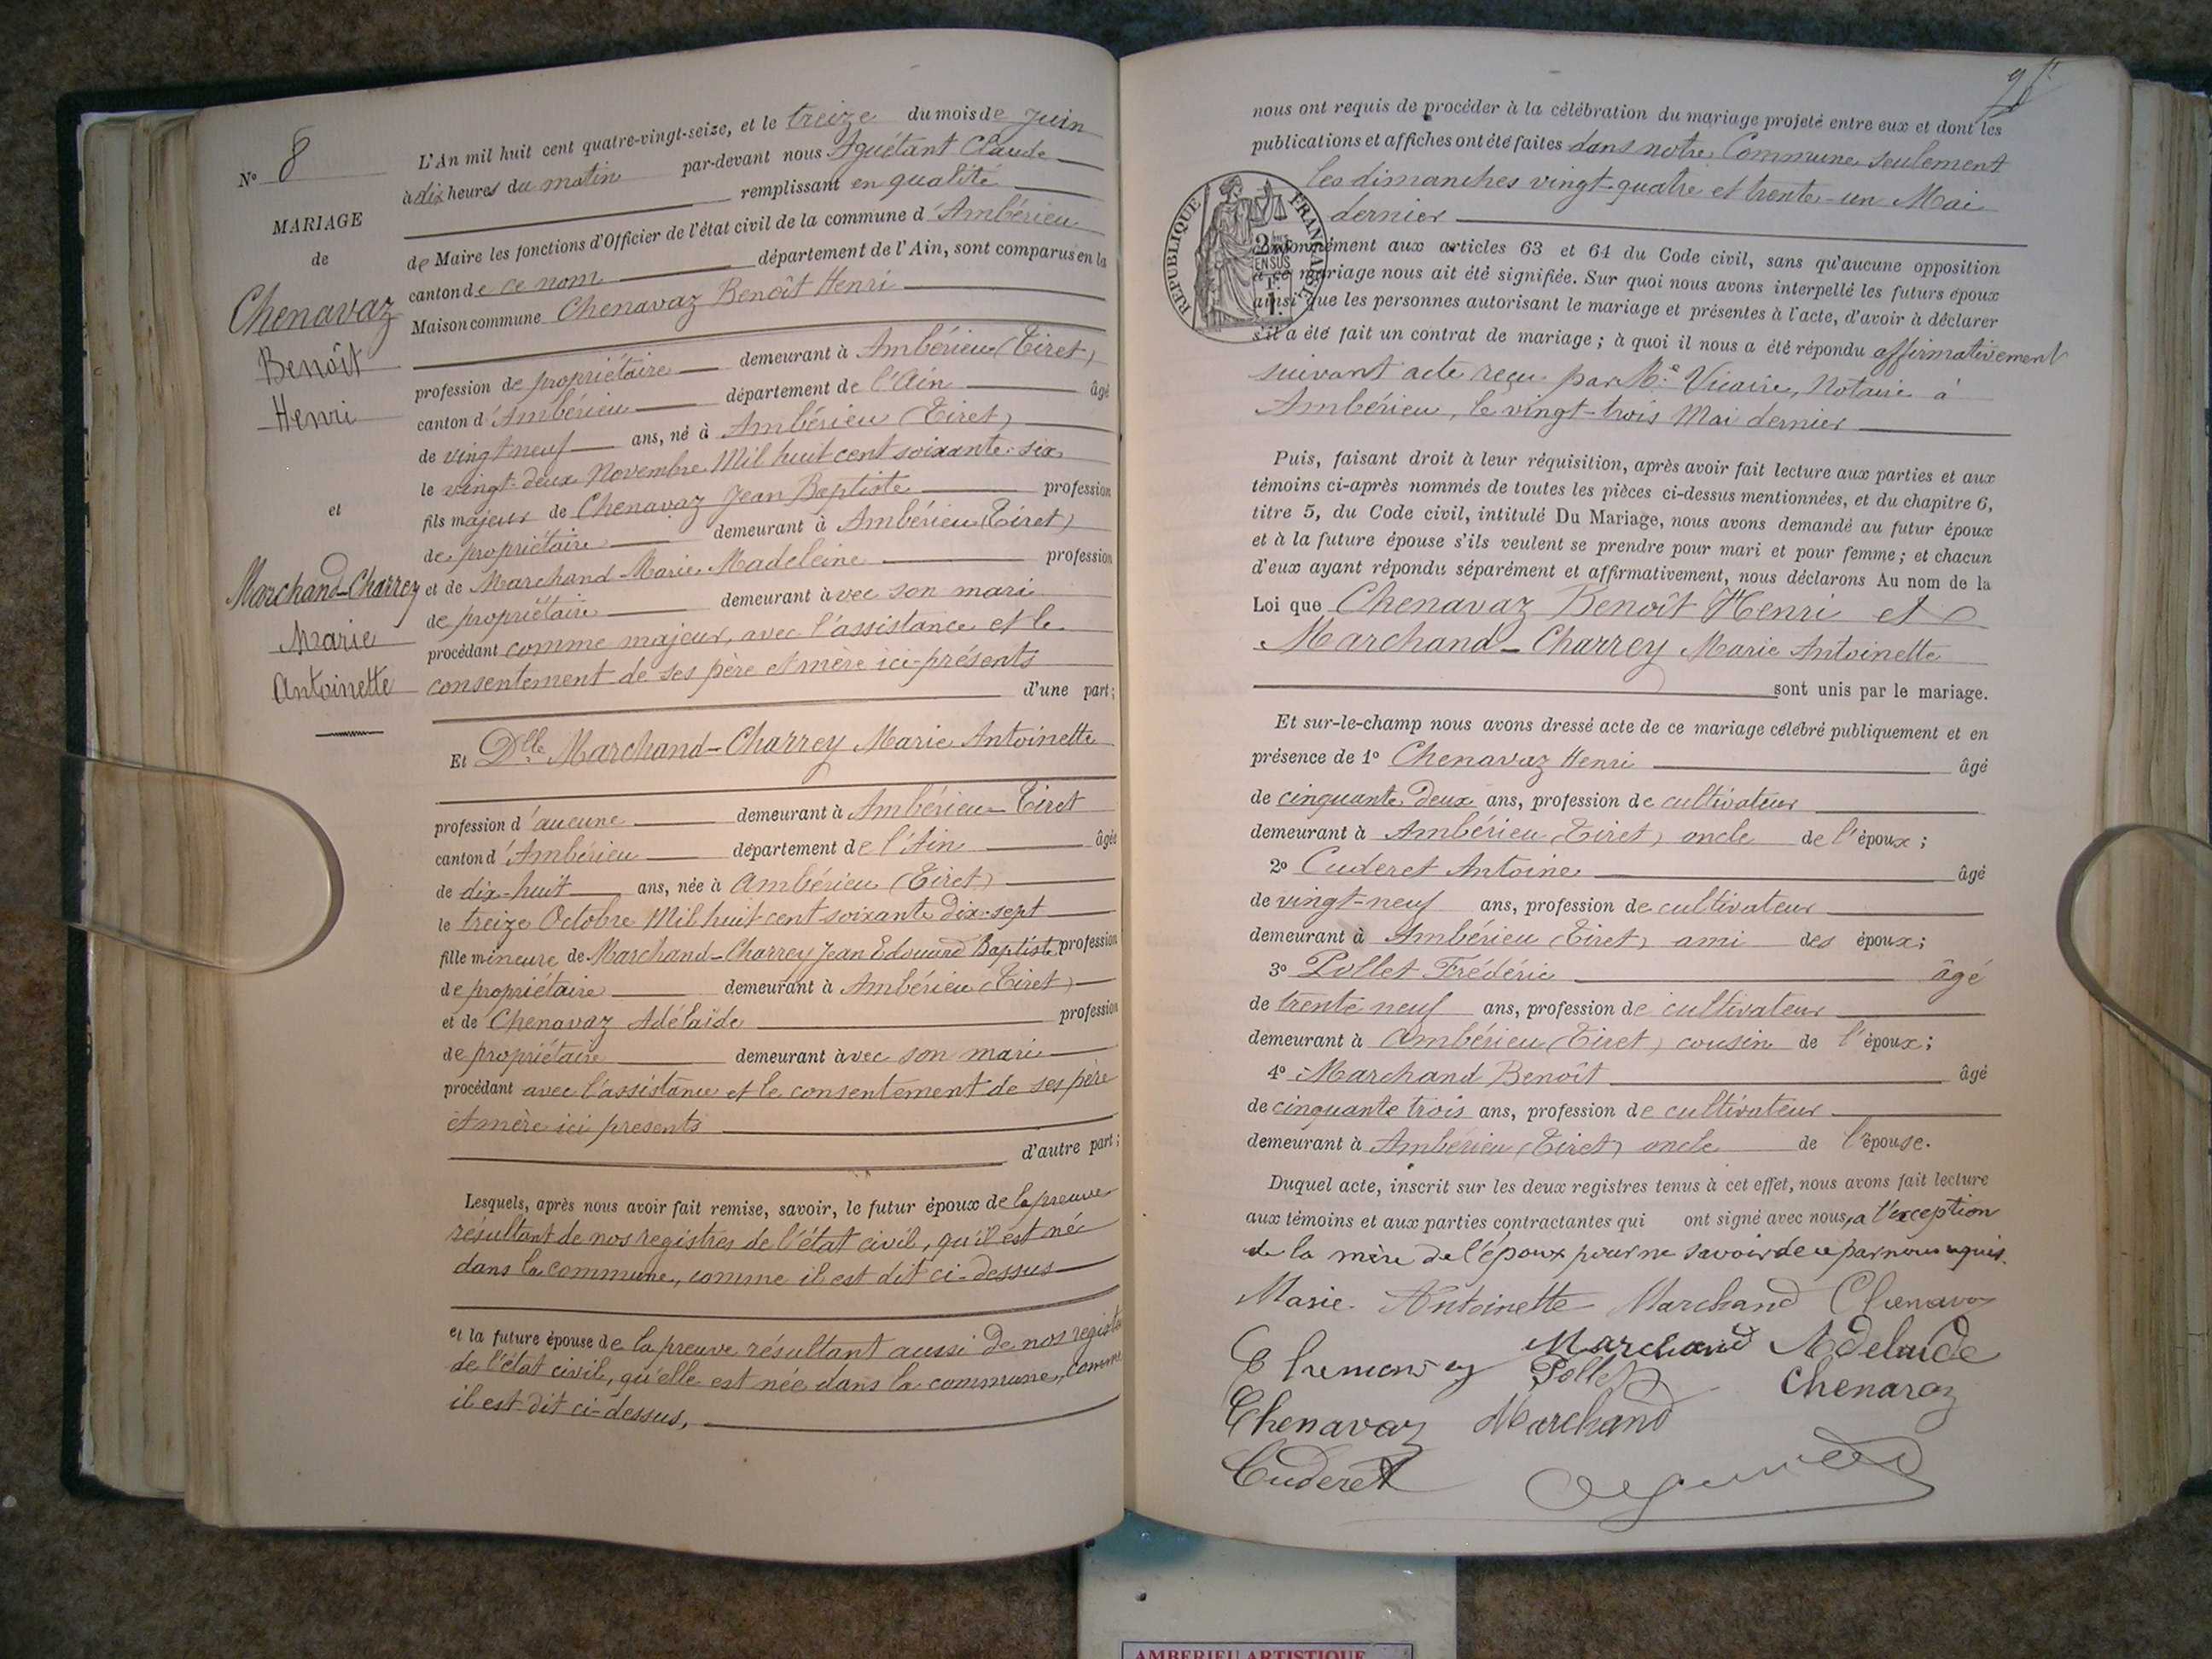 N° 8
MARIAGE
de
Chenavaz
Benoît
Henri
et
Marchand-Charrey
Marie
Antoinette
L'An mil huit cent quatre-vingt-seize, et le treize du mois de Juin
à dix heures du matin par-devant nous Aguétant Claude
remplissant en qualité
de Maire les fonctions d'Officier de l'état civil de la commune d'Ambérieu
canton de ce nom département de l'Ain, sont comparus en la
Maison commune Chenavaz Benoît Henri
profession de propriétaire demeurant à Ambérieu (Tiret)
canton d'Ambérieu département de l'Ain âgé
de vingt neuf ans, né à Ambérieu (Tiret)
le vingt-deux Novembre Mil huit cent soixante-six
fils majeur de Chenavaz Jean Baptiste profession
de propriétaire demeurant à Ambérieu (Tiret)
et de Marchand Marie Madeleine profession
de propriétaire demeurant avec son mari
procédant comme majeur, avec l'assistance et le
consentement de ses père et mère ici-présents
d'une part;
Et Dlle Marchand-Charrey Marie Antoinette
profession d'aucune demeurant à Ambérieu-Tiret
canton d'Ambérieu département de l'Ain âgée
de dix-huit ans, née à Ambérieu (Tiret)
le treize Octobre Mil huit cent soixante dix-sept
fille mineure de Marchand-Charrey Jean Edouard Baptiste profession
de propriétaire demeurant à Ambérieu (Tiret)
et de Chenavaz Adélaïde profession
de propriétaire demeurant avec son mari
procédant avec l'assistance et le consentement de ses père
et mère ici presents
d'autre part;
Lesquels, après nous avoir fait remise, savoir, le futur époux de la preuve
résultant de nos registres de l'état civil, qu'il est né
dans la commune, comme il est dit ci-dessus
et la future épouse de la preuve résultant aussi de nos registres
de l'état civil, qu'elle est née dans la commune, comme
il est dit ci-dessus,
nous ont requis de procéder à la célébration du mariage projeté entre eux et dont les
publications et affiches ont été faites dans notre Commune seulement
les dimanches vingt-quatre et trente-un Mai
dernier
RÉPUBLIQUE FRANÇAISE
conformément aux articles 63 et 64 du Code civil, sans qu'aucune opposition
à ce mariage nous ait été signifiée. Sur quoi nous avons interpellé les futurs époux
ainsi que les personnes autorisant le mariage et présentes à l'acte, d'avoir à déclarer
s'il a été fait un contrat de mariage; à quoi il nous a été répondu affirmativement
suivant acte reçu par Me Vicaire, Notaire à
Ambérieu, le vingt-trois Mai dernier
Puis, faisant droit à leur réquisition, après avoir fait lecture aux parties et aux
témoins ci-après nommés de toutes les pièces ci-dessus mentionnées, et du chapitre 6,
titre 5, du Code civil, intitulé Du Mariage, nous avons demandé au futur époux
et à la future épouse s'ils veulent se prendre pour mari et pour femme; et chacun
d'eux ayant répondu séparément et affirmativement, nous déclarons Au nom de la
Loi que Chenavaz Benoît Henri et
Marchand-Charrey Marie Antoinette
sont unis par le mariage.
Et sur-le-champ nous avons dressé acte de ce mariage célébré publiquement et en
présence de 1° Chenavaz Henri âgé
de cinquante deux ans, profession de cultivateur
demeurant à Ambérieu (Tiret) oncle de l'époux;
2° Cuderet Antoine âgé
de vingt-neuf ans, profession de cultivateur
demeurant à Ambérieu (Tiret) ami des époux;
3° Pollet Frédéric âgé
de trente neuf ans, profession de cultivateur
demeurant à Ambérieu (Tiret) cousin de l'époux;
4° Marchand Benoît âgé
de cinquante trois ans, profession de cultivateur
demeurant à Ambérieu (Tiret) oncle de l'épouse.
Duquel acte, inscrit sur les deux registres tenus à cet effet, nous avons fait lecture
aux témoins et aux parties contractantes qui ont signé avec nous, a l'exception
de la mère de l'époux pour ne savoir de ce par nous requis.
Marie Antoinette Marchand Chenavaz
Marchand Adelaide
Pollet Chenavaz
Chenavaz Marchand
Cuderet
AMBERIEU ARTISTIQUE